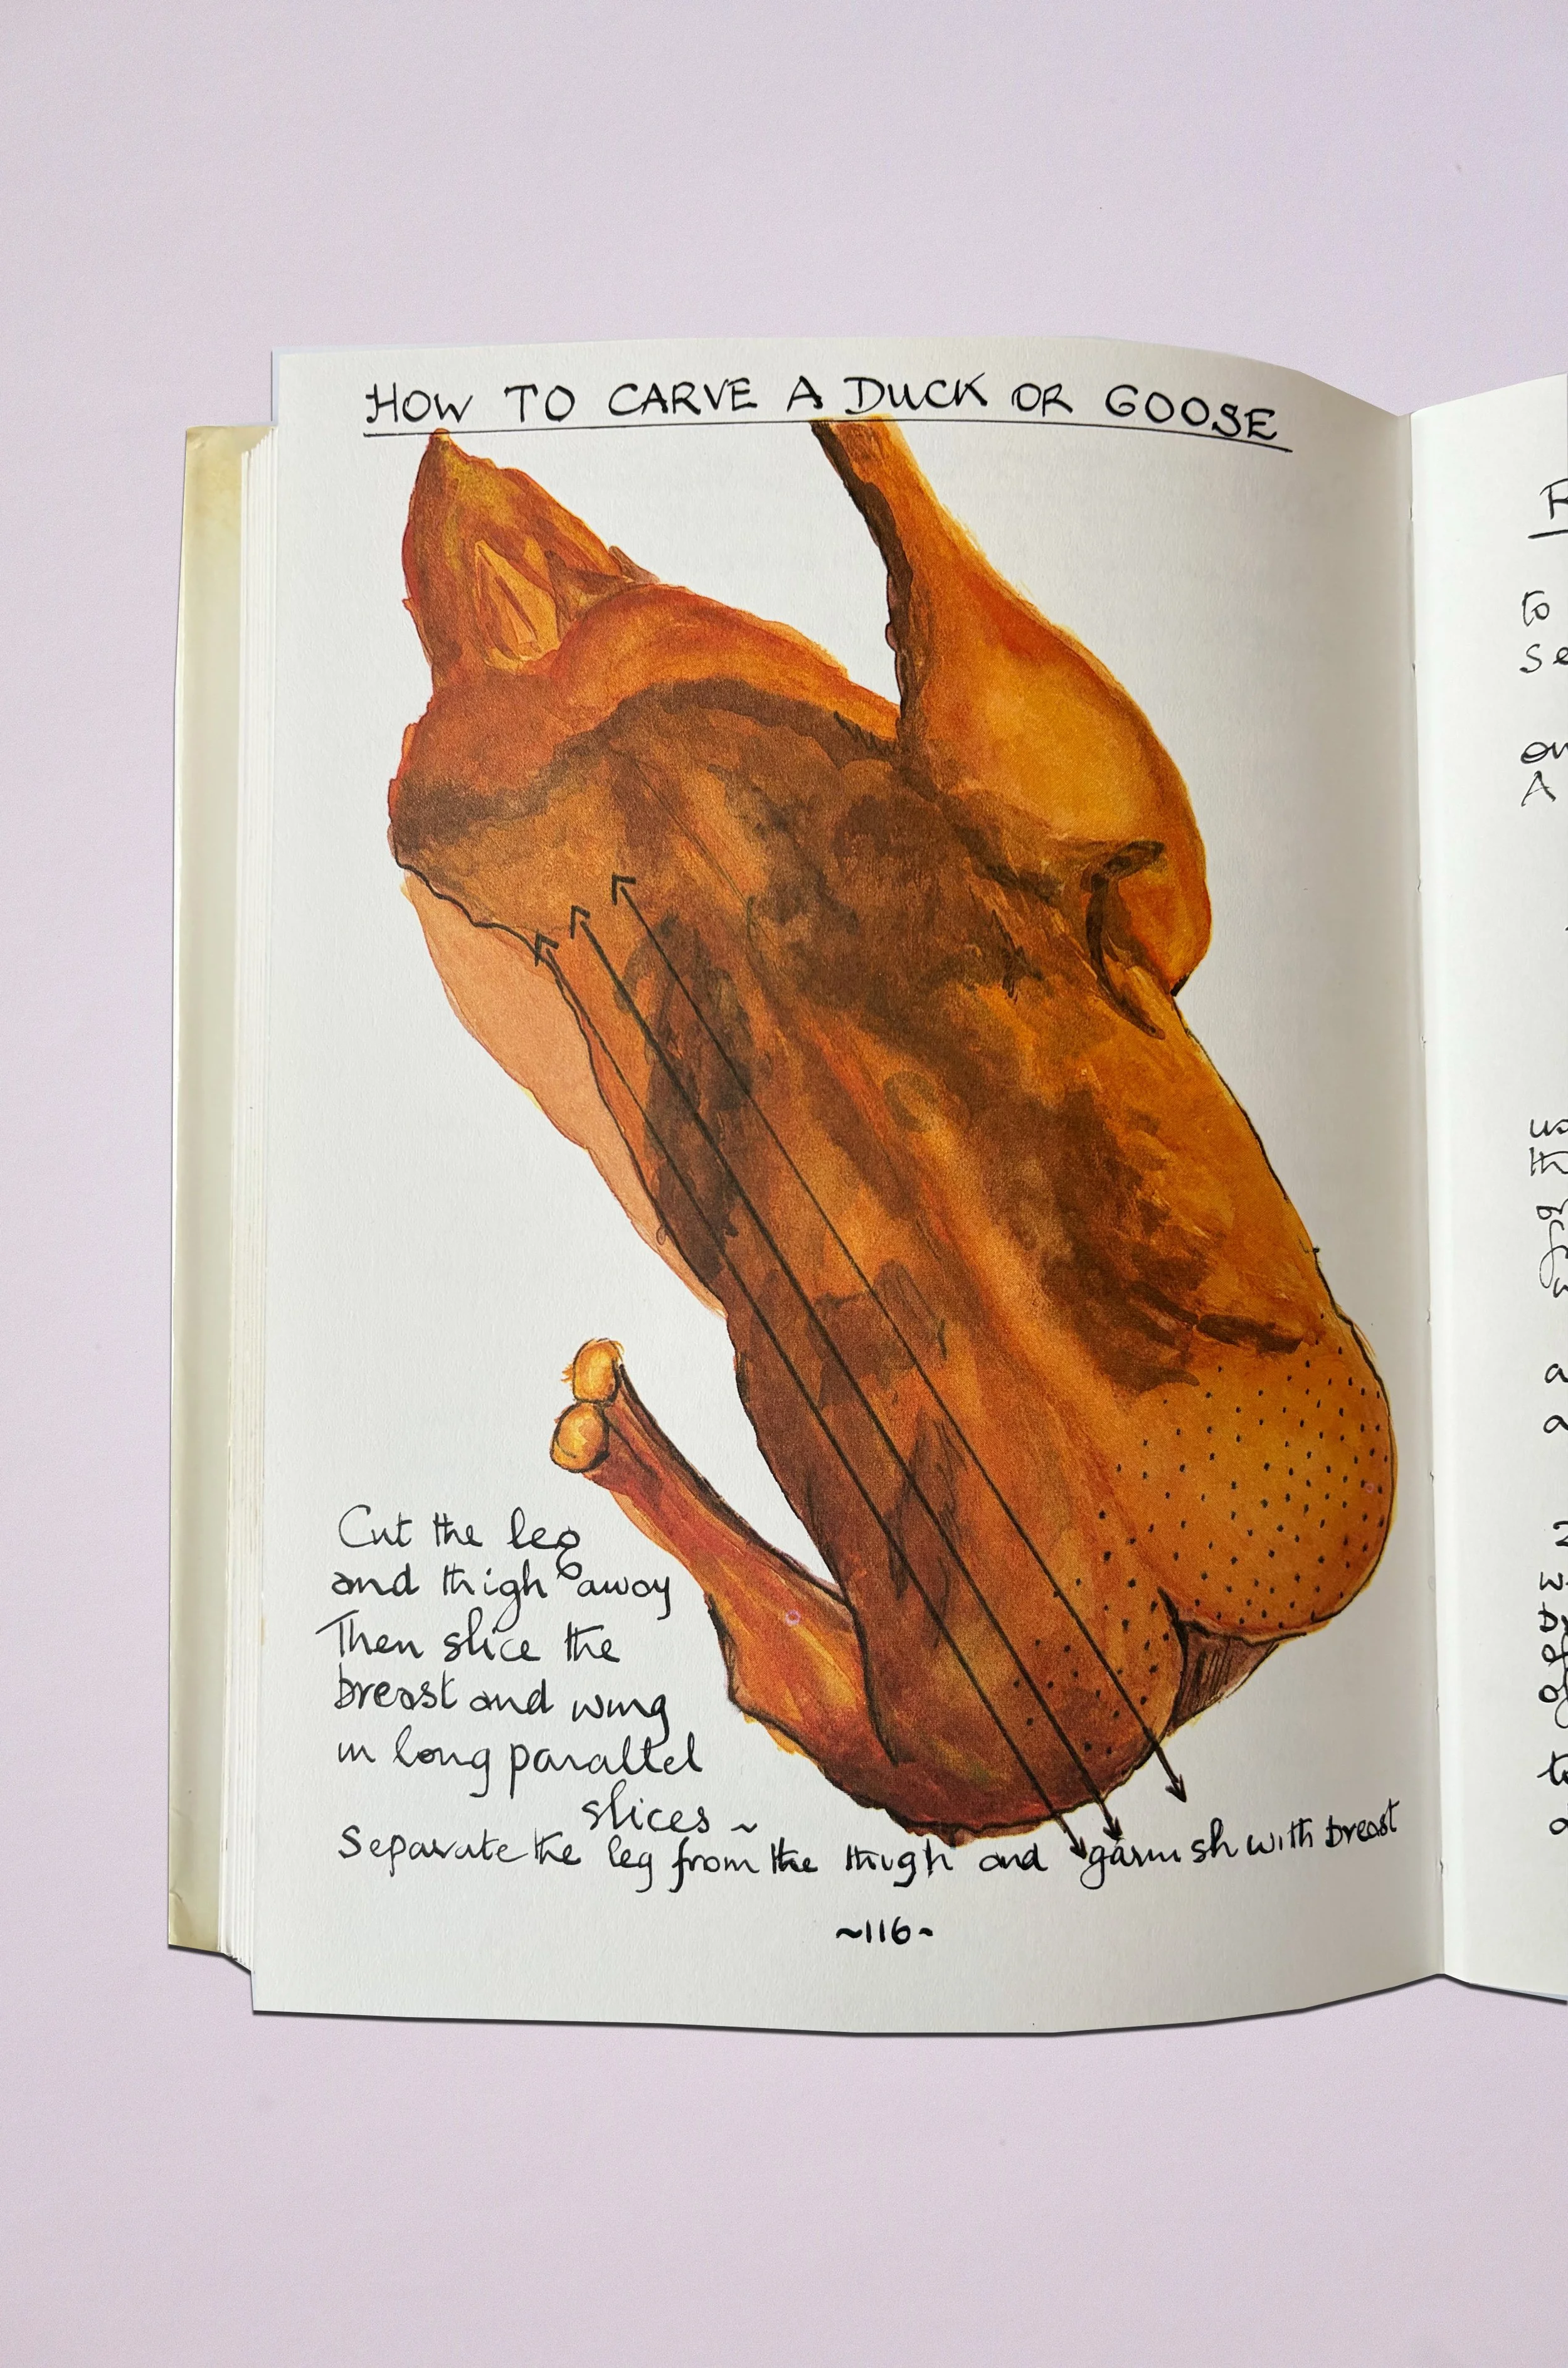 HOW TO CARVE A DUCK OR GOOSE
Cut the leg
and thigh away
Then slice the
breast and wing
in long parallel
slices ~
Separate the leg from the thigh and garnish with breast
~116~
to
A